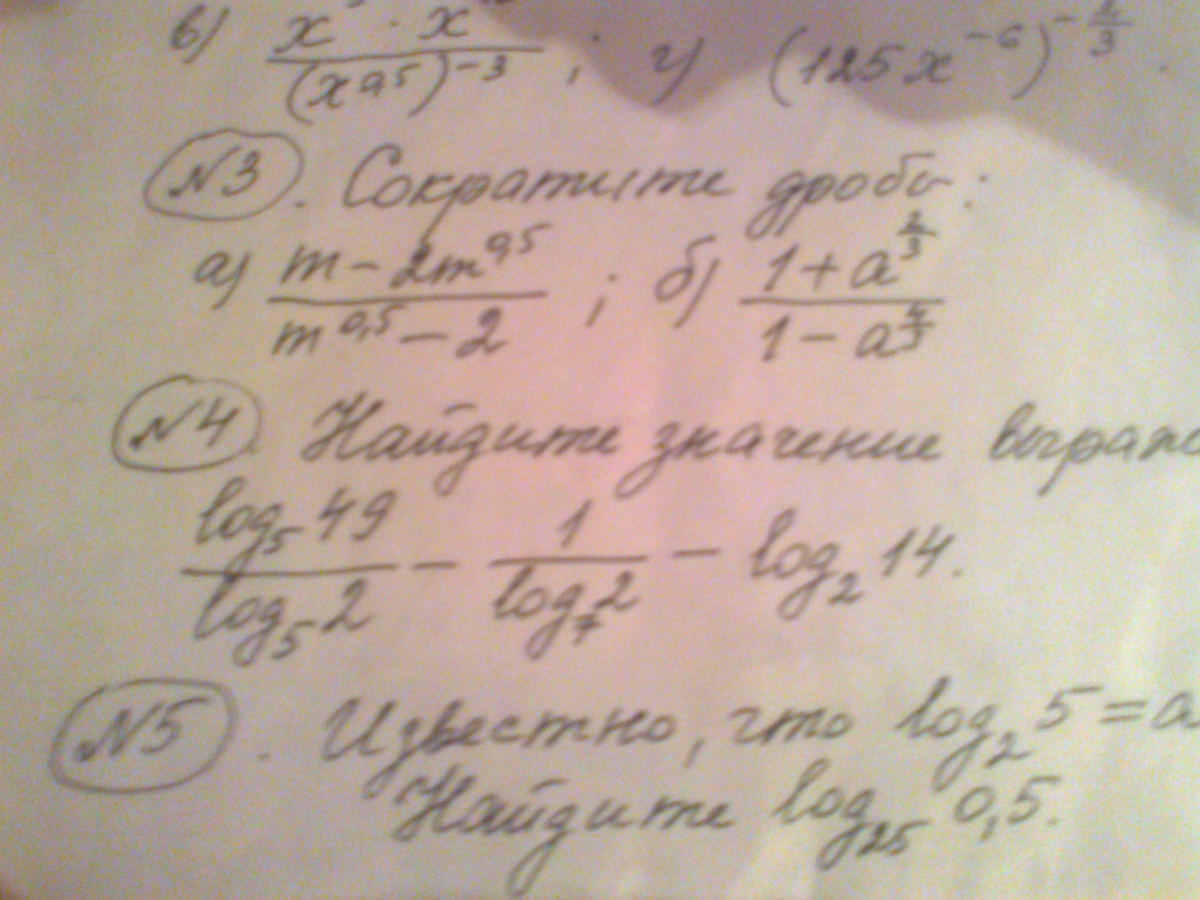 в) x · x / (x^0,5)^-3 ; г) (125x^-6)^-2/3.
№3. Сократите дробь:
а) (m - 2m^0,5) / (m^0,5 - 2) ; б) (1 + a^2/3) / (1 - a^4/3)
№4. Найдите значение выраж
log_5 49 / log_5 2 - 1 / log_7 2 - log_2 14.
№5. Известно, что log_2 5 = a
Найдите log_25 0,5.